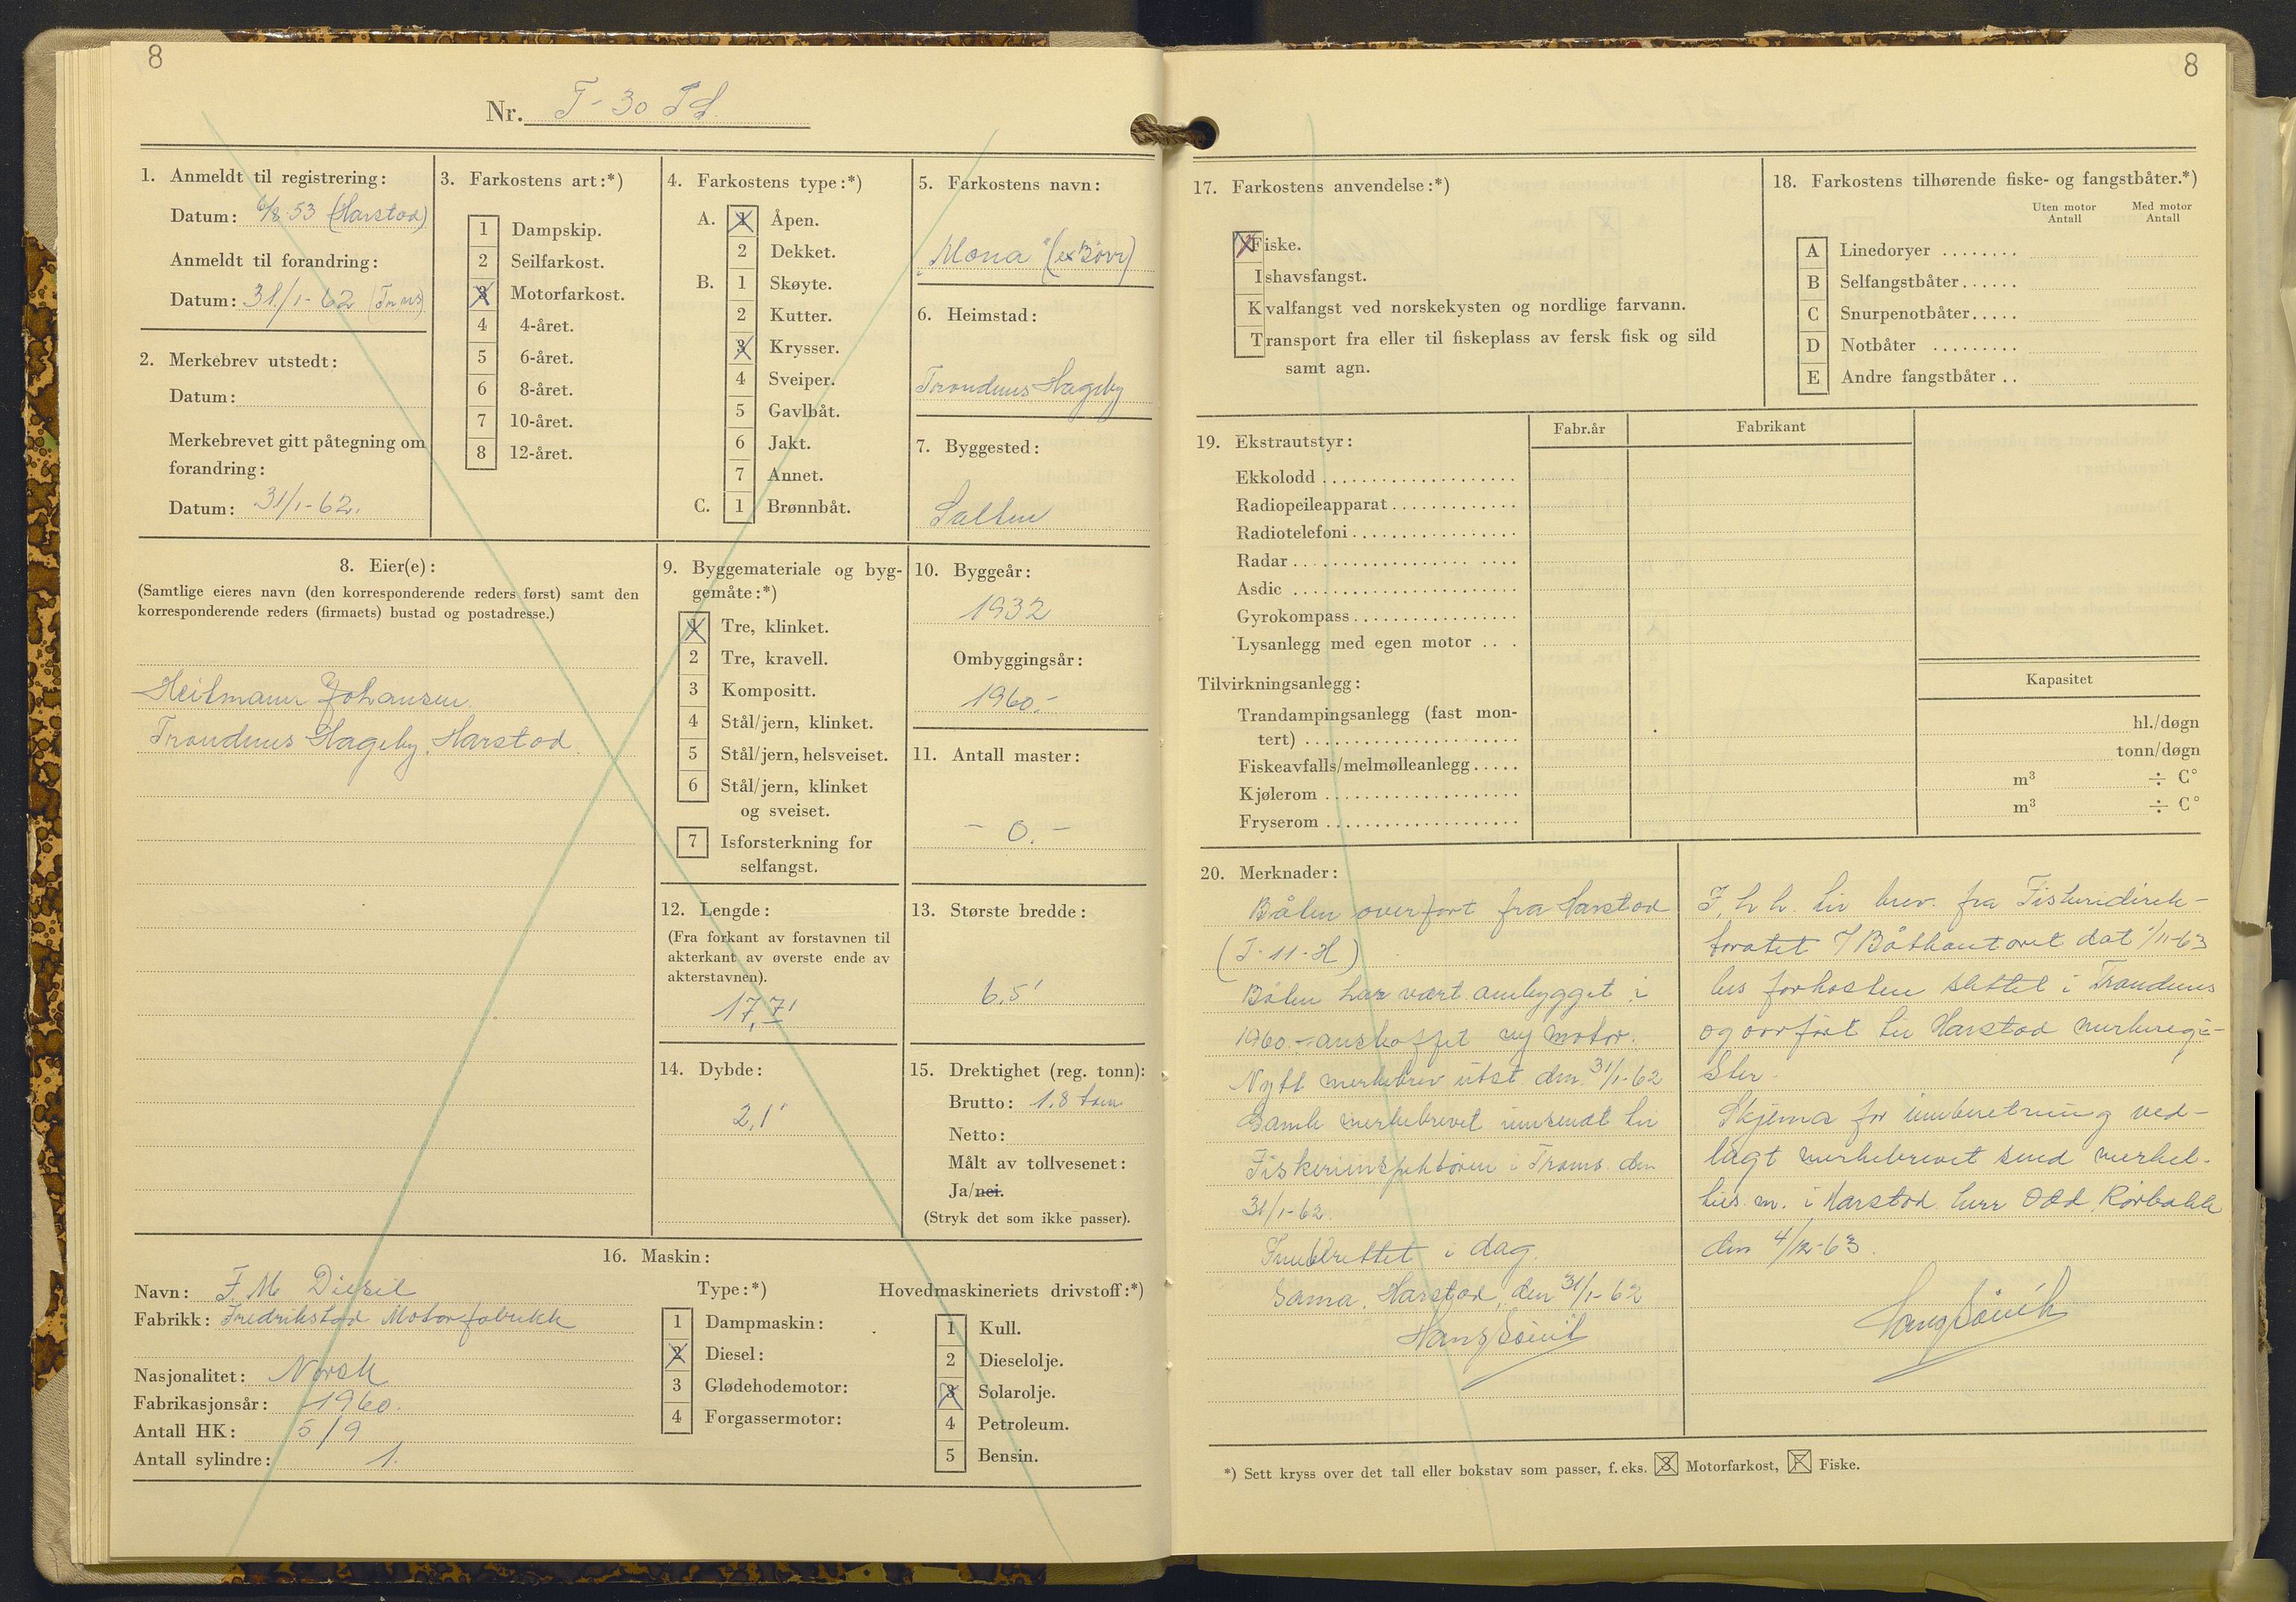 8
Nr. T-30 Td.
1. Anmeldt til registrering:
Datum: 6/8-53 (Harstad)
Anmeldt til forandring:
Datum: 31/1-62 (Trms)
2. Merkebrev utstedt:
Datum:
Merkebrevet gitt påtegning om
forandring:
Datum: 31/1-62.
3. Farkostens art:*)
1 Dampskip.
2 Seilfarkost.
3 Motorfarkost.
4 4-året.
5 6-året.
6 8-året.
7 10-året.
8 12-året.
4. Farkostens type:*)
A. 1 Åpen.
2 Dekket.
B. 1 Skøyte.
2 Kutter.
3 Krysser.
4 Sveiper.
5 Gavlbåt.
6 Jakt.
7 Annet.
C. 1 Brønnbåt.
5. Farkostens navn:
"Mona" (ex
6. Heimstad:
Trondenes Hageby
7. Byggested:
Salten
8. Eier(e):
(Samtlige eieres navn (den korresponderende reders først) samt den
korresponderende reders (firmaets) bustad og postadresse.)
Heitmann Johansen
Trondenes Hageby. Harstad.
9. Byggemateriale og byg-
gemåte:*)
1 Tre, klinket.
2 Tre, kravell.
3 Kompositt.
4 Stål/jern, klinket.
5 Stål/jern, helsveiset.
6 Stål/jern, klinket
og sveiset.
7 Isforsterkning for
selfangst.
10. Byggeår:
1932
Ombyggingsår:
1960.-
11. Antall master:
- 0. -
12. Lengde:
(Fra forkant av forstavnen til
akterkant av øverste ende av
akterstavnen).
17,7'
13. Største bredde:
6,5'
14. Dybde:
2,1'
15. Drektighet (reg. tonn):
Brutto: 1.8 tonn
Netto:
Målt av tollvesenet:
Ja/nei.
(Stryk det som ikke passer).
16. Maskin:
Navn: F. M. Diesel
Fabrikk: Fredrikstad Motorfabrikk
Nasjonalitet: Norsk
Fabrikasjonsår: 1960.
Antall HK: 5/9
Antall sylindre: 1.
Type:*)
1 Dampmaskin:
2 Diesel:
3 Glødehodemotor:
4 Forgassermotor:
Hovedmaskineriets drivstoff:*)
1 Kull.
2 Dieselolje.
3 Solarolje.
4 Petroleum.
5 Bensin.
8
17. Farkostens anvendelse:*)
Fiske.
Ishavsfangst.
Kvalfangst ved norskekysten og nordlige farvann.
Transport fra eller til fiskeplass av fersk fisk og sild
samt agn.
18. Farkostens tilhørende fiske- og fangstbåter.*)
Uten motor Antall
Med motor Antall
A Linedoryer
B Selfangstbåter
C Snurpenotbåter
D Notbåter
E Andre fangstbåter
19. Ekstrautstyr:
Fabr.år
Fabrikant
Ekkolodd
Radiopeileapparat
Radiotelefoni
Radar
Asdic
Gyrokompass
Lysanlegg med egen motor
Tilvirkningsanlegg:
Kapasitet
Trandampingsanlegg (fast mon-
tert) hl./døgn
Fiskeavfalls/melmølleanlegg tonn/døgn
Kjølerom m³ ÷ C°
Fryserom m³ ÷ C°
20. Merknader:
Båten overført fra Harstad
(T-11-H)
Båten har vært ombygget i
1960. - anskaffet ny motor.
Nytt merkebrev utst. den 31/1-62
Gamle merkebrevet innsendt til
Fiskeriinspektøren i Troms. den
31/1-62.
Innberettet i dag.
Sama, Harstad, den 31/1-62
Hans
I. h. h. til brev. fra Fiskeridirek-
toratet / Båtkontoret dat 1/11-63
farkosten slettet i Trondenes
og overført til Harstad merkeregi-
ster.
Skjema for innberetning ved-
lagt merkebrevet send merkel-
m. i Harstad herr Odd
den 4/12-63.
Hans
*) Sett kryss over det tall eller bokstav som passer, f. eks. 3 Motorfarkost, F Fiske.